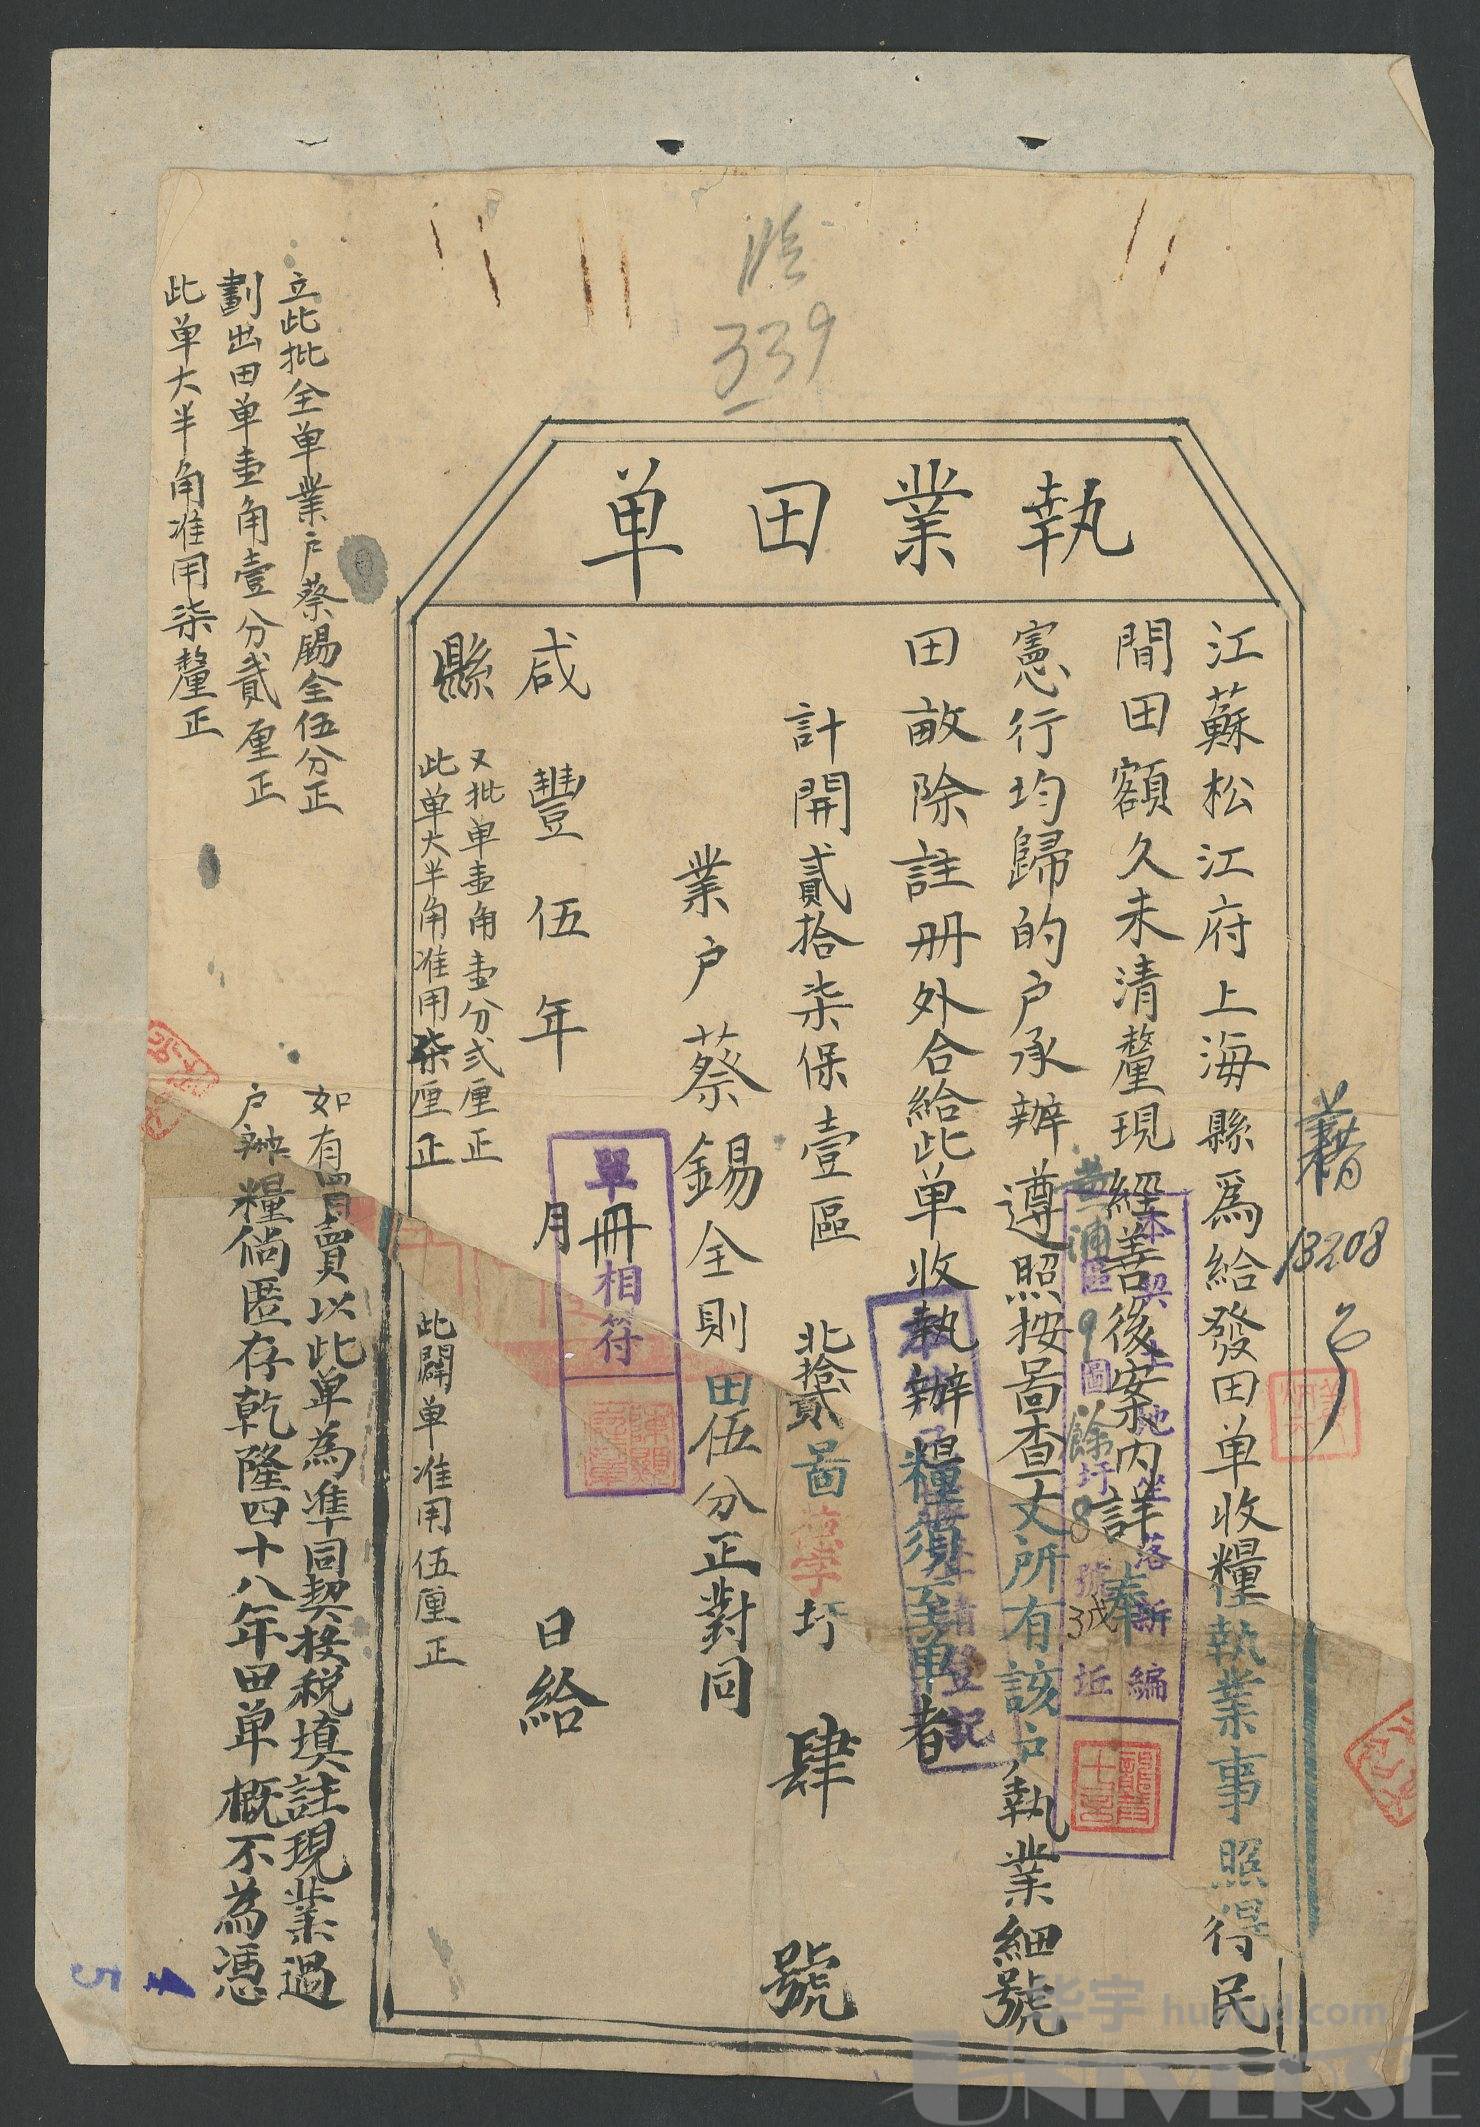 339
執業田单
江蘇松江府上海縣爲給發田单收糧執業事照得民
間田額久未清釐現經善後案内詳奉
憲行均歸的户承辦遵照按啚查丈所有該户執業細號
田畝除註册外合給此单收執辦糧須至单者
計開貳拾柒保壹區北拾貳啚 字圩肆號
業户蔡錫全則田伍分正對同
咸豐伍年月日給
縣
又批单壹角壹分弍厘正
此单大半角准用柒厘正
此闢单准用伍厘正
立此批全单業户蔡錫全伍分正
劃出田单壹角壹分貳厘正
此单大半角准用柒釐正
如有買賣以此单為準同契投税填註現業過
户辦糧倘匿存乾隆四十八年田单概不為憑
單册相符
本契土地坐落新編
黄浦區9圖餘圩8號 坵
請登記
藉
13208
号
华宇 huabid.com
UNIVERSE